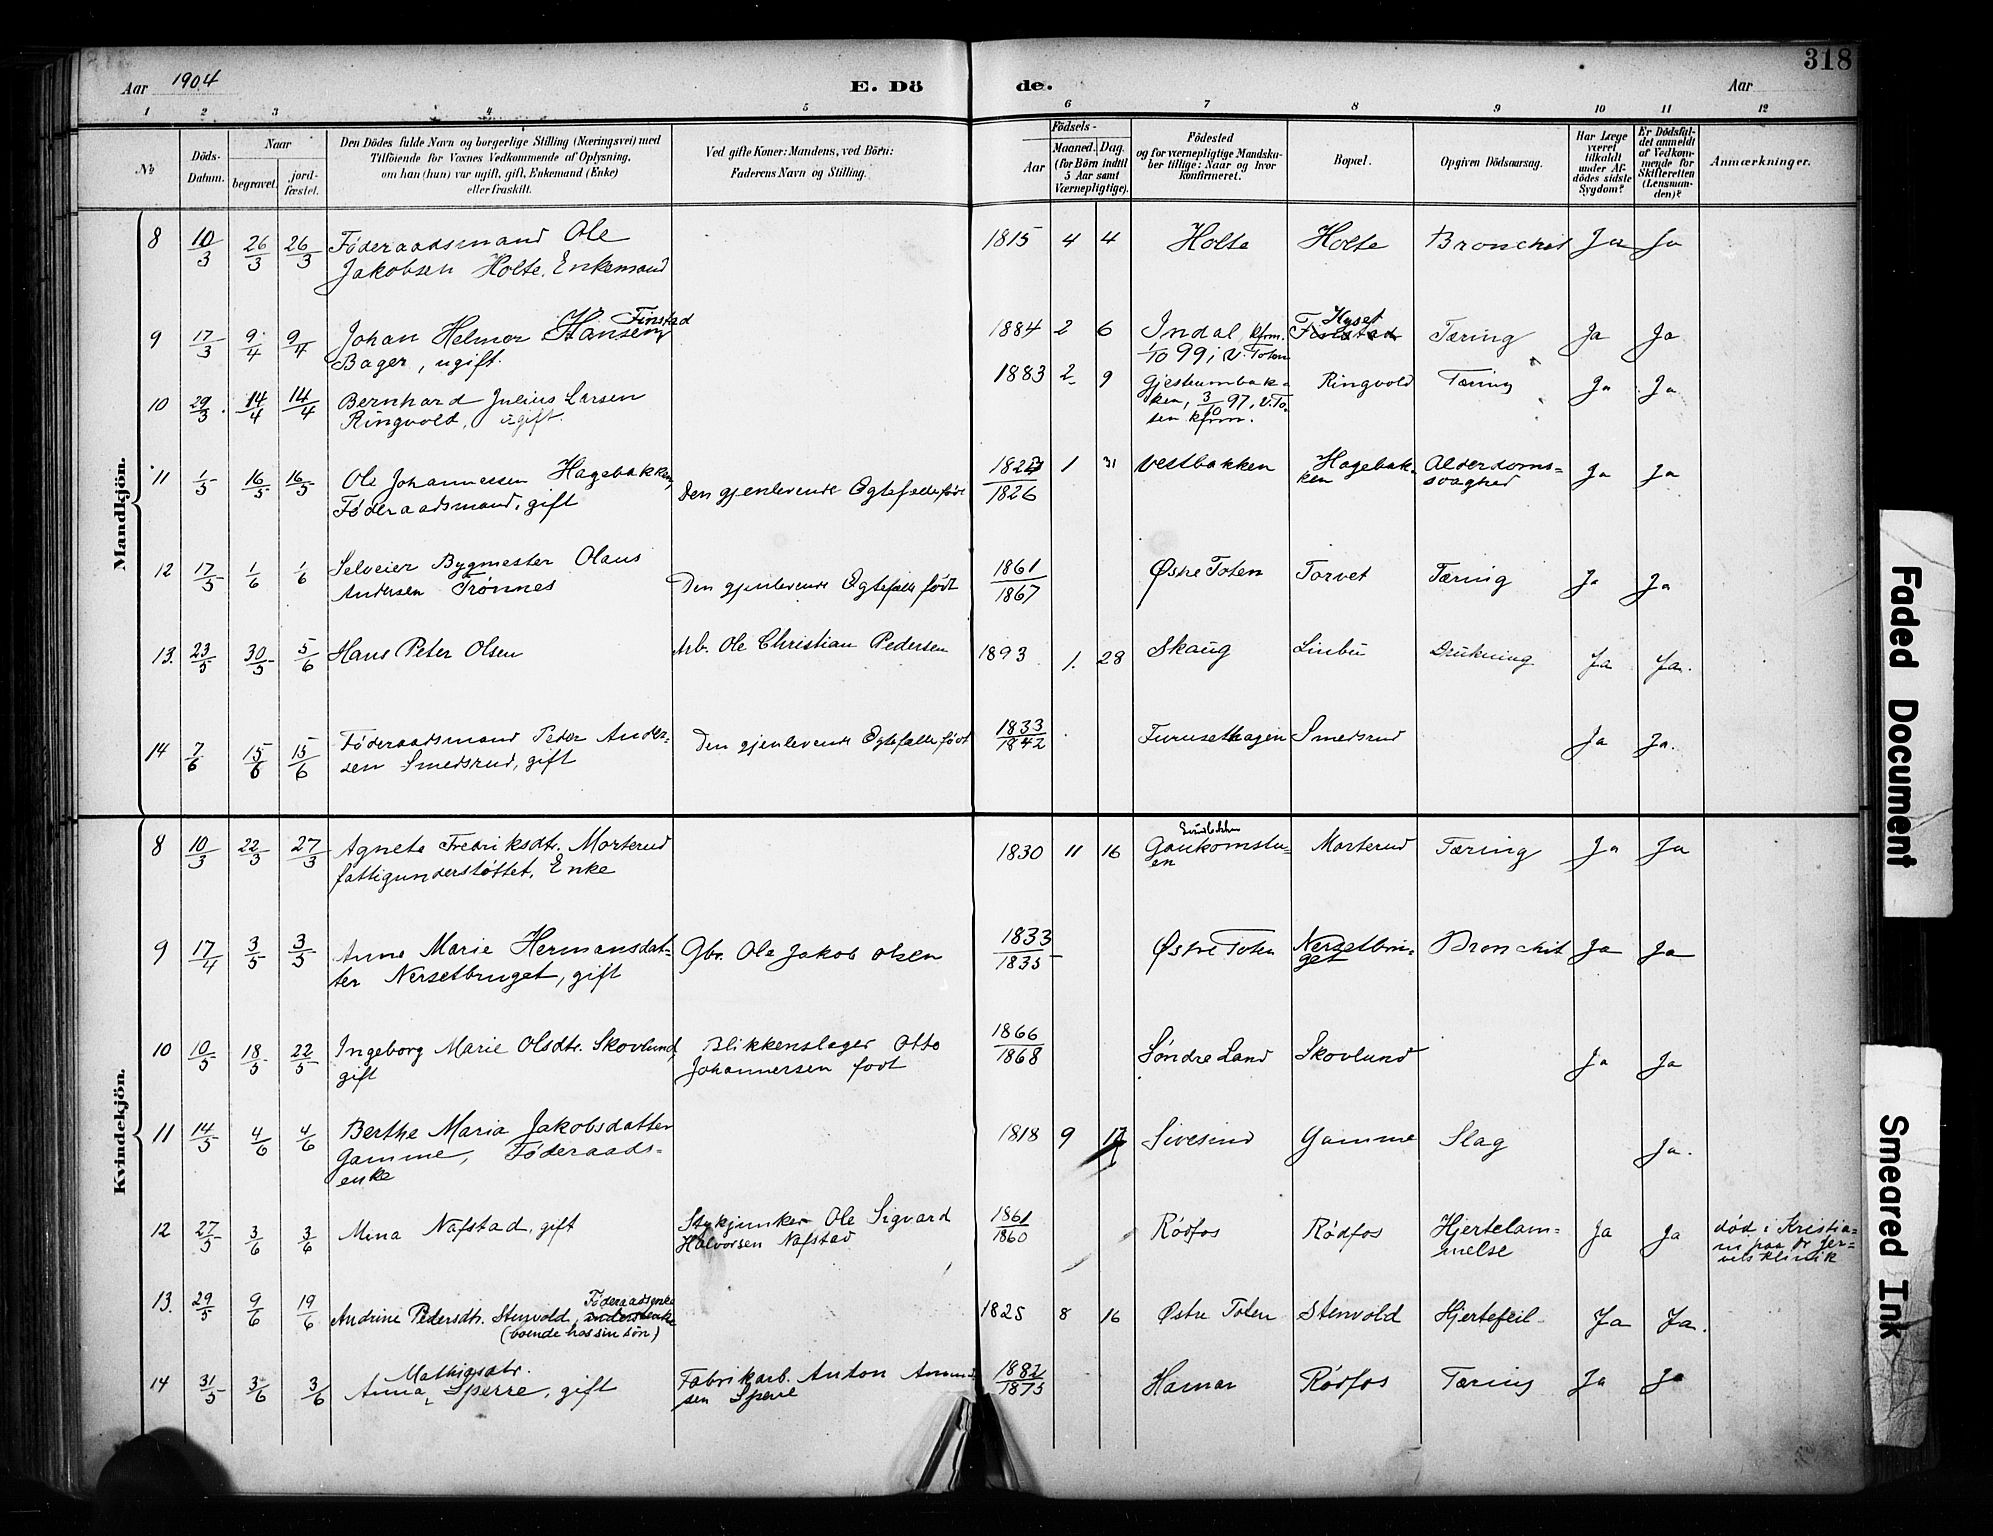 318
Aar 1904 E. Dö de. Aar
1 2 3 4 5 6 7 8 9 10 11 12
№
Döds-Datum.
Naar
begravet.
jord-fæstet.
Den Dödes fulde Navn og borgerlige Stilling (Næringsvei) med
Tilföiende for Voxnes Vedkommende af Oplysning,
om han (hun) var ugift, gift, Enkemand (Enke)
eller fraskilt.
Ved gifte Koner: Mandens, ved Börn:
Faderens Navn og Stilling.
Födsels-
Aar
Maaned. Dag.
(for Börn indtil
5 Aar samt
Værnepligtige).
Födested
og for værnepligtige Mandska-
ber tillige: Naar og hvor
konfirmeret.
Bopæl.
Opgiven Dödsaarsag.
Har Læge
været
tilkaldt
under Af-
dödes sidste
Sygdom?
Er Dödsfal-
det anmeldt
af Vedkom-
mende for
Skifteretten
(Lensman-
den)?
Anmærkninger.
Mandkjön.
8 10/3 26/3 26/3 Föderaadsmand Ole 1815 4 4 Holte Holte Bronchit Ja Ja
Jakobsen Holte. Enkemand
9 17/3 9/4 9/4 Johan Helmer Hansen Finstad 1884 2 6 Indal, kfrm. Finstad Hyset Tæring Ja Ja
Bager, ugift. 1/10 99 i V. Toten
10 29/3 14/4 14/4 Bernhard Julius Larsen 1883 2 9 Gjestrumbak- Ringvold Tæring Ja Ja
Ringvold, ugift. ken, 3/10 97, V. To-
ten kfrm.
11 1/5 16/5 16/5 Ole Johannessen Hagebakken, Den gjenlevende Egtefælle födt 1823 1826 1 31 Vestbakken Hagebak- Alderdoms- Ja Ja
Föderaadsmand, gift ken svaghed
12 17/5 1/6 1/6 Selveier Bygmester Olaus Den gjenlevende Egtefælle födt 1861 1867 Østre Toten Torvet Tæring Ja Ja
Andersen Trönnes
13. 23/5 30/5 5/6 Hans Peter Olsen Arb. Ole Christian Pedersen 1893 1. 28 Skaug Linbu Drukning Ja Ja.
14 7/6 15/6 15/6 Föderaadsmand Peder Ander- Den gjenlevende Egtefælle födt 1833 1842 Furusethagen Smedsrud Ja Ja.
sen Smedsrud, gift
Kvindekjön.
8 10/3 22/3 27/3 Agnete Fredriksdtr. Morterud 1830 11 16 Gaukomstu- Morterud Tæring Ja Ja
fattigunderstöttet, Enke en
9 17/4 3/5 3/5 Anne Marie Hermansdat- Gbr. Ole Jakob Olsen 1833 1835 Østre Toten Nersetbru- Bronchit Ja Ja
ter Nersetbruget, gift get
10 10/5 18/5 22/5 Ingeborg Marie Olsdtr. Skovlund, Blikkenslager Otto 1866 1868 Söndre Land Skovlund Ja Ja
gift Johannersen födt
11 14/5 4/6 4/6 Berthe Maria Jakobsdatter 1818 9 17 Sivesind Gamme Slag Ja.
Gamme, Föderaads-
enke
12 27/5 3/6 3/6 Mina Nafstad, gift Stykjunker Ole Sigvard 1861 1860 Rödfos Rödfos Hjertelam- Ja Ja död i Kristia-
Halvorsen Nafstad melse nia paa Dr Jer-
vels klinik
13. 29/5 9/6 19/6 Andrine Pedersdtr. Stenvold, Föderaadsenke 1825 8 16 Østre Toten Stenvold Hjertefeil Ja Ja.
(boende hos sin sön)
14 31/5 3/6 3/6 Anna Mathiasdtr. Sperre, gift Fabrikarb. Anton Amund- 1882 1875 Hamar Rödfos Tæring Ja Ja
sen Sperre
Faded Document
Smeared Ink